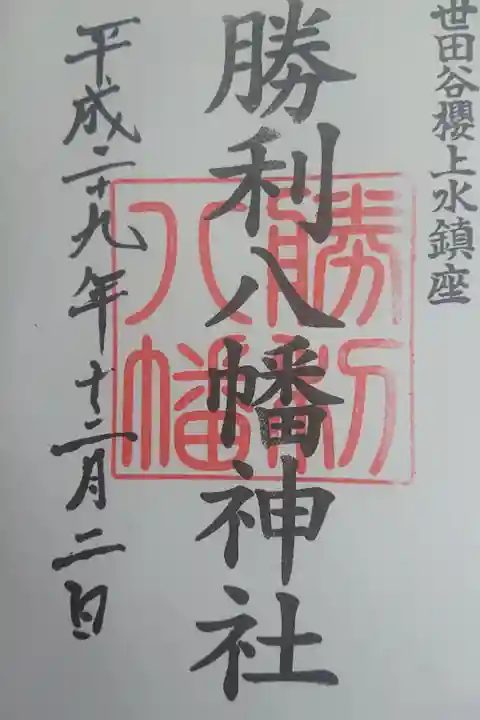 世田谷櫻上水鎮座
勝利八幡神社
勝利
八幡
平成二十九年十二月二日